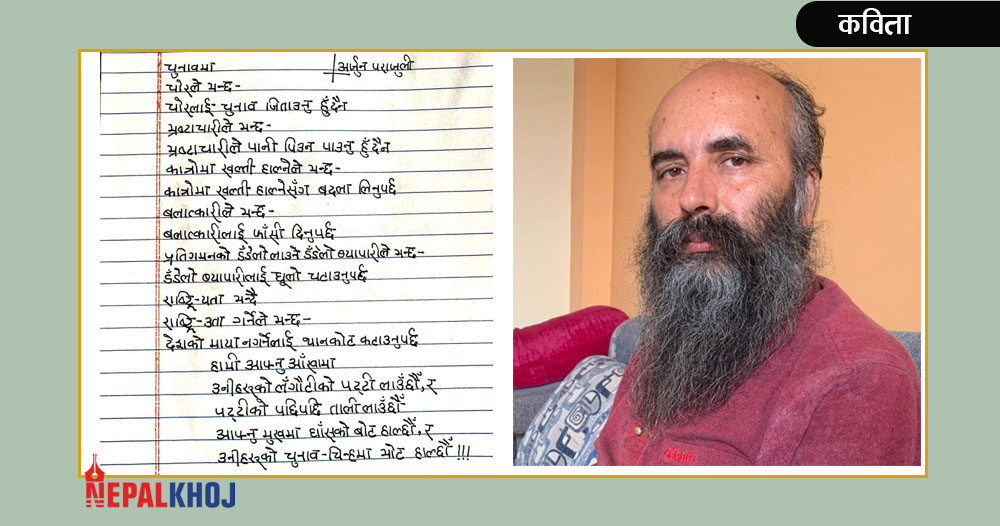 कविता
चुनावमा
अर्जुन पराजुली
चोरले भन्छ-
चोरलाई चुनाव जिताउनु हुँदैन
भ्रष्टाचारीले भन्छ-
भ्रष्टाचारीले पानी पिउन पाउनु हुँदैन
कात्रोमा खल्ती हाल्नेले भन्छ-
कात्रोमा खल्ती हाल्नेसँग बदला लिनुपर्छ
बलात्कारीले भन्छ-
बलात्कारीलाई फाँसी दिनुपर्छ
प्रतिगमनको डँडेलो लाउने डँडेलो व्यापारीले भन्छ-
डँडेलो व्यापारीलाई धूलो चटाउनुपर्छ
राष्ट्रि-यता भन्दै
राष्ट्रि-उता गर्नेले भन्छ-
देशको माया नगर्नेलाई थानकोट कटाउनुपर्छ
हामी आफ्नु आँखामा
उनीहरूको लँगौटीको पट्टी लाउँछौँ, र
पट्टीको पछिपछि ताली लाउँछौँ
आफ्नु मुखमा घाँसको बोट हाल्छौँ, र
उनीहरूको चुनाव-चिन्हमा भोट हाल्छौँ !!!
NEPALKHOJ